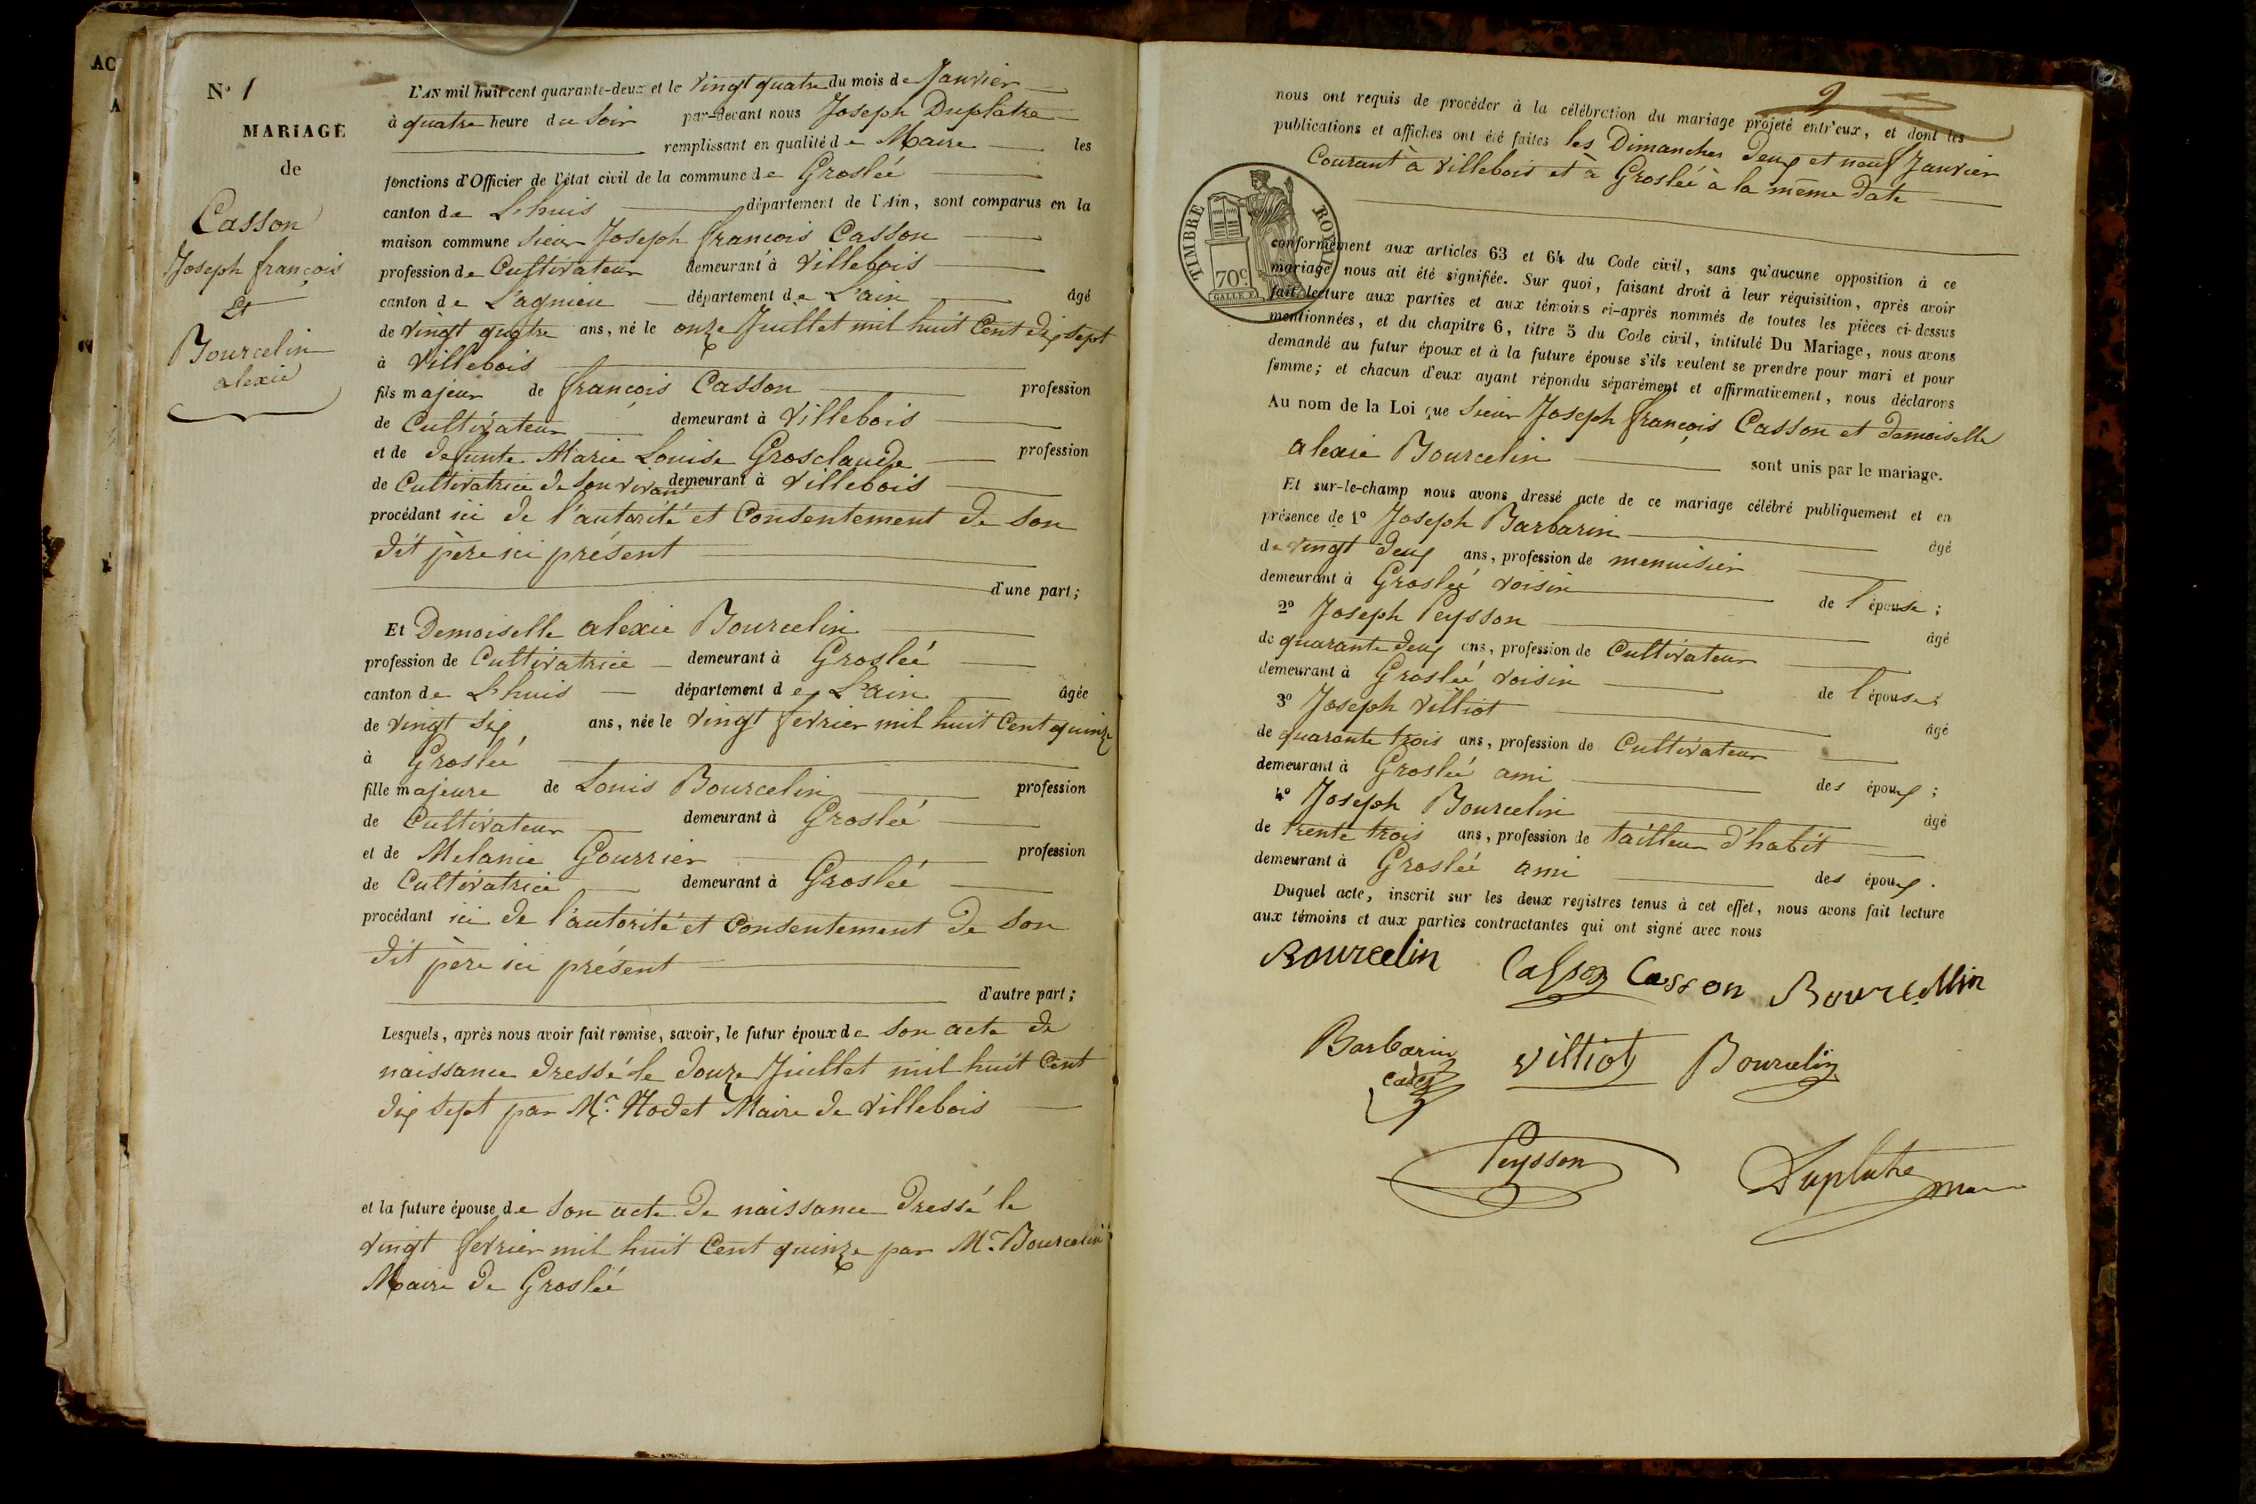 AC
A
N° 1
MARIAGE
de
Casson
Joseph françois
Et
Bourcelin
alexie
L'AN mil huit cent quarante-deux et le vingt quatre du mois de Janvier
à quatre heure du soir par-devant nous Joseph Duplatre
remplissant en qualité de Maire les
fonctions d'Officier de l'état civil de la commune de Groslée
canton de L'huis département de l'Ain, sont comparus en la
maison commune Sieur Joseph françois Casson
profession de Cultivateur demeurant à Villebois
canton de Lagnieu département de L'ain âgé
de vingt quatre ans, né le onze Juillet mil huit Cent dix sept
à Villebois
fils majeur de françois Casson profession
de Cultivateur demeurant à Villebois
et de defunte Marie Louise Grosclaude profession
de Cultivatrice de Son vivant demeurant à Villebois
procédant ici de l'autorité et Consentement de Son
dit père ici présent
d'une part;
Et Demoiselle alexie Bourcelin
profession de Cultivatrice demeurant à Groslée
canton de L'huis département de L'ain âgée
de vingt six ans, née le vingt fevrier mil huit Cent quinze
à Groslée
fille majeure de Louis Bourcelin profession
de Cultivateur demeurant à Groslée
et de Melanie Gourrier profession
de Cultivatrice demeurant à Groslée
procédant ici de l'autorité et Consentement de Son
dit père ici présent
d'autre part;
Lesquels, après nous avoir fait remise, savoir, le futur époux de Son acte de
naissance dressé le douze Juillet mil huit Cent
dix sept par Mr. Hodet Maire de Villebois
et la future épouse de Son acte de naissance dressé le
vingt fevrier mil huit Cent quinze par Mr. Bourcelin
Maire de Groslée
2
nous ont requis de procéder à la célébration du mariage projeté entr'eux, et dont les
publications et affiches ont été faites les Dimanches deux et neuf Janvier
Courant à Villebois et à Groslée à la même date
TIMBRE ROYAL
70c.
conformément aux articles 63 et 64 du Code civil, sans qu'aucune opposition à ce
mariage nous ait été signifiée. Sur quoi, faisant droit à leur réquisition, après avoir
fait lecture aux parties et aux témoins ci-après nommés de toutes les pièces ci-dessus
mentionnées, et du chapitre 6, titre 5 du Code civil, intitulé Du Mariage, nous avons
demandé au futur époux et à la future épouse s'ils veulent se prendre pour mari et pour
femme; et chacun d'eux ayant répondu séparément et affirmativement, nous déclarons
Au nom de la Loi que Sieur Joseph françois Casson et demoiselle
alexie Bourcelin sont unis par le mariage.
Et sur-le-champ nous avons dressé acte de ce mariage célébré publiquement et en
présence de 1° Joseph Barbarin âgé
de vingt deux ans, profession de menuisier
demeurant à Groslée voisin de l'épouse;
2° Joseph Peysson âgé
de quarante deux ans, profession de Cultivateur
demeurant à Groslée voisin de l'épouse;
3° Joseph Villiot âgé
de quarante trois ans, profession de Cultivateur
demeurant à Groslée ami des époux;
4° Joseph Bourcelin âgé
de trente trois ans, profession de tailleur d'habit
demeurant à Groslée ami des époux.
Duquel acte, inscrit sur les deux registres tenus à cet effet, nous avons fait lecture
aux témoins et aux parties contractantes qui ont signé avec nous
Bourcelin Casson Casson Bourcellin
Barbarin Villiot Bourcelin
cadet
Peysson Duplatre